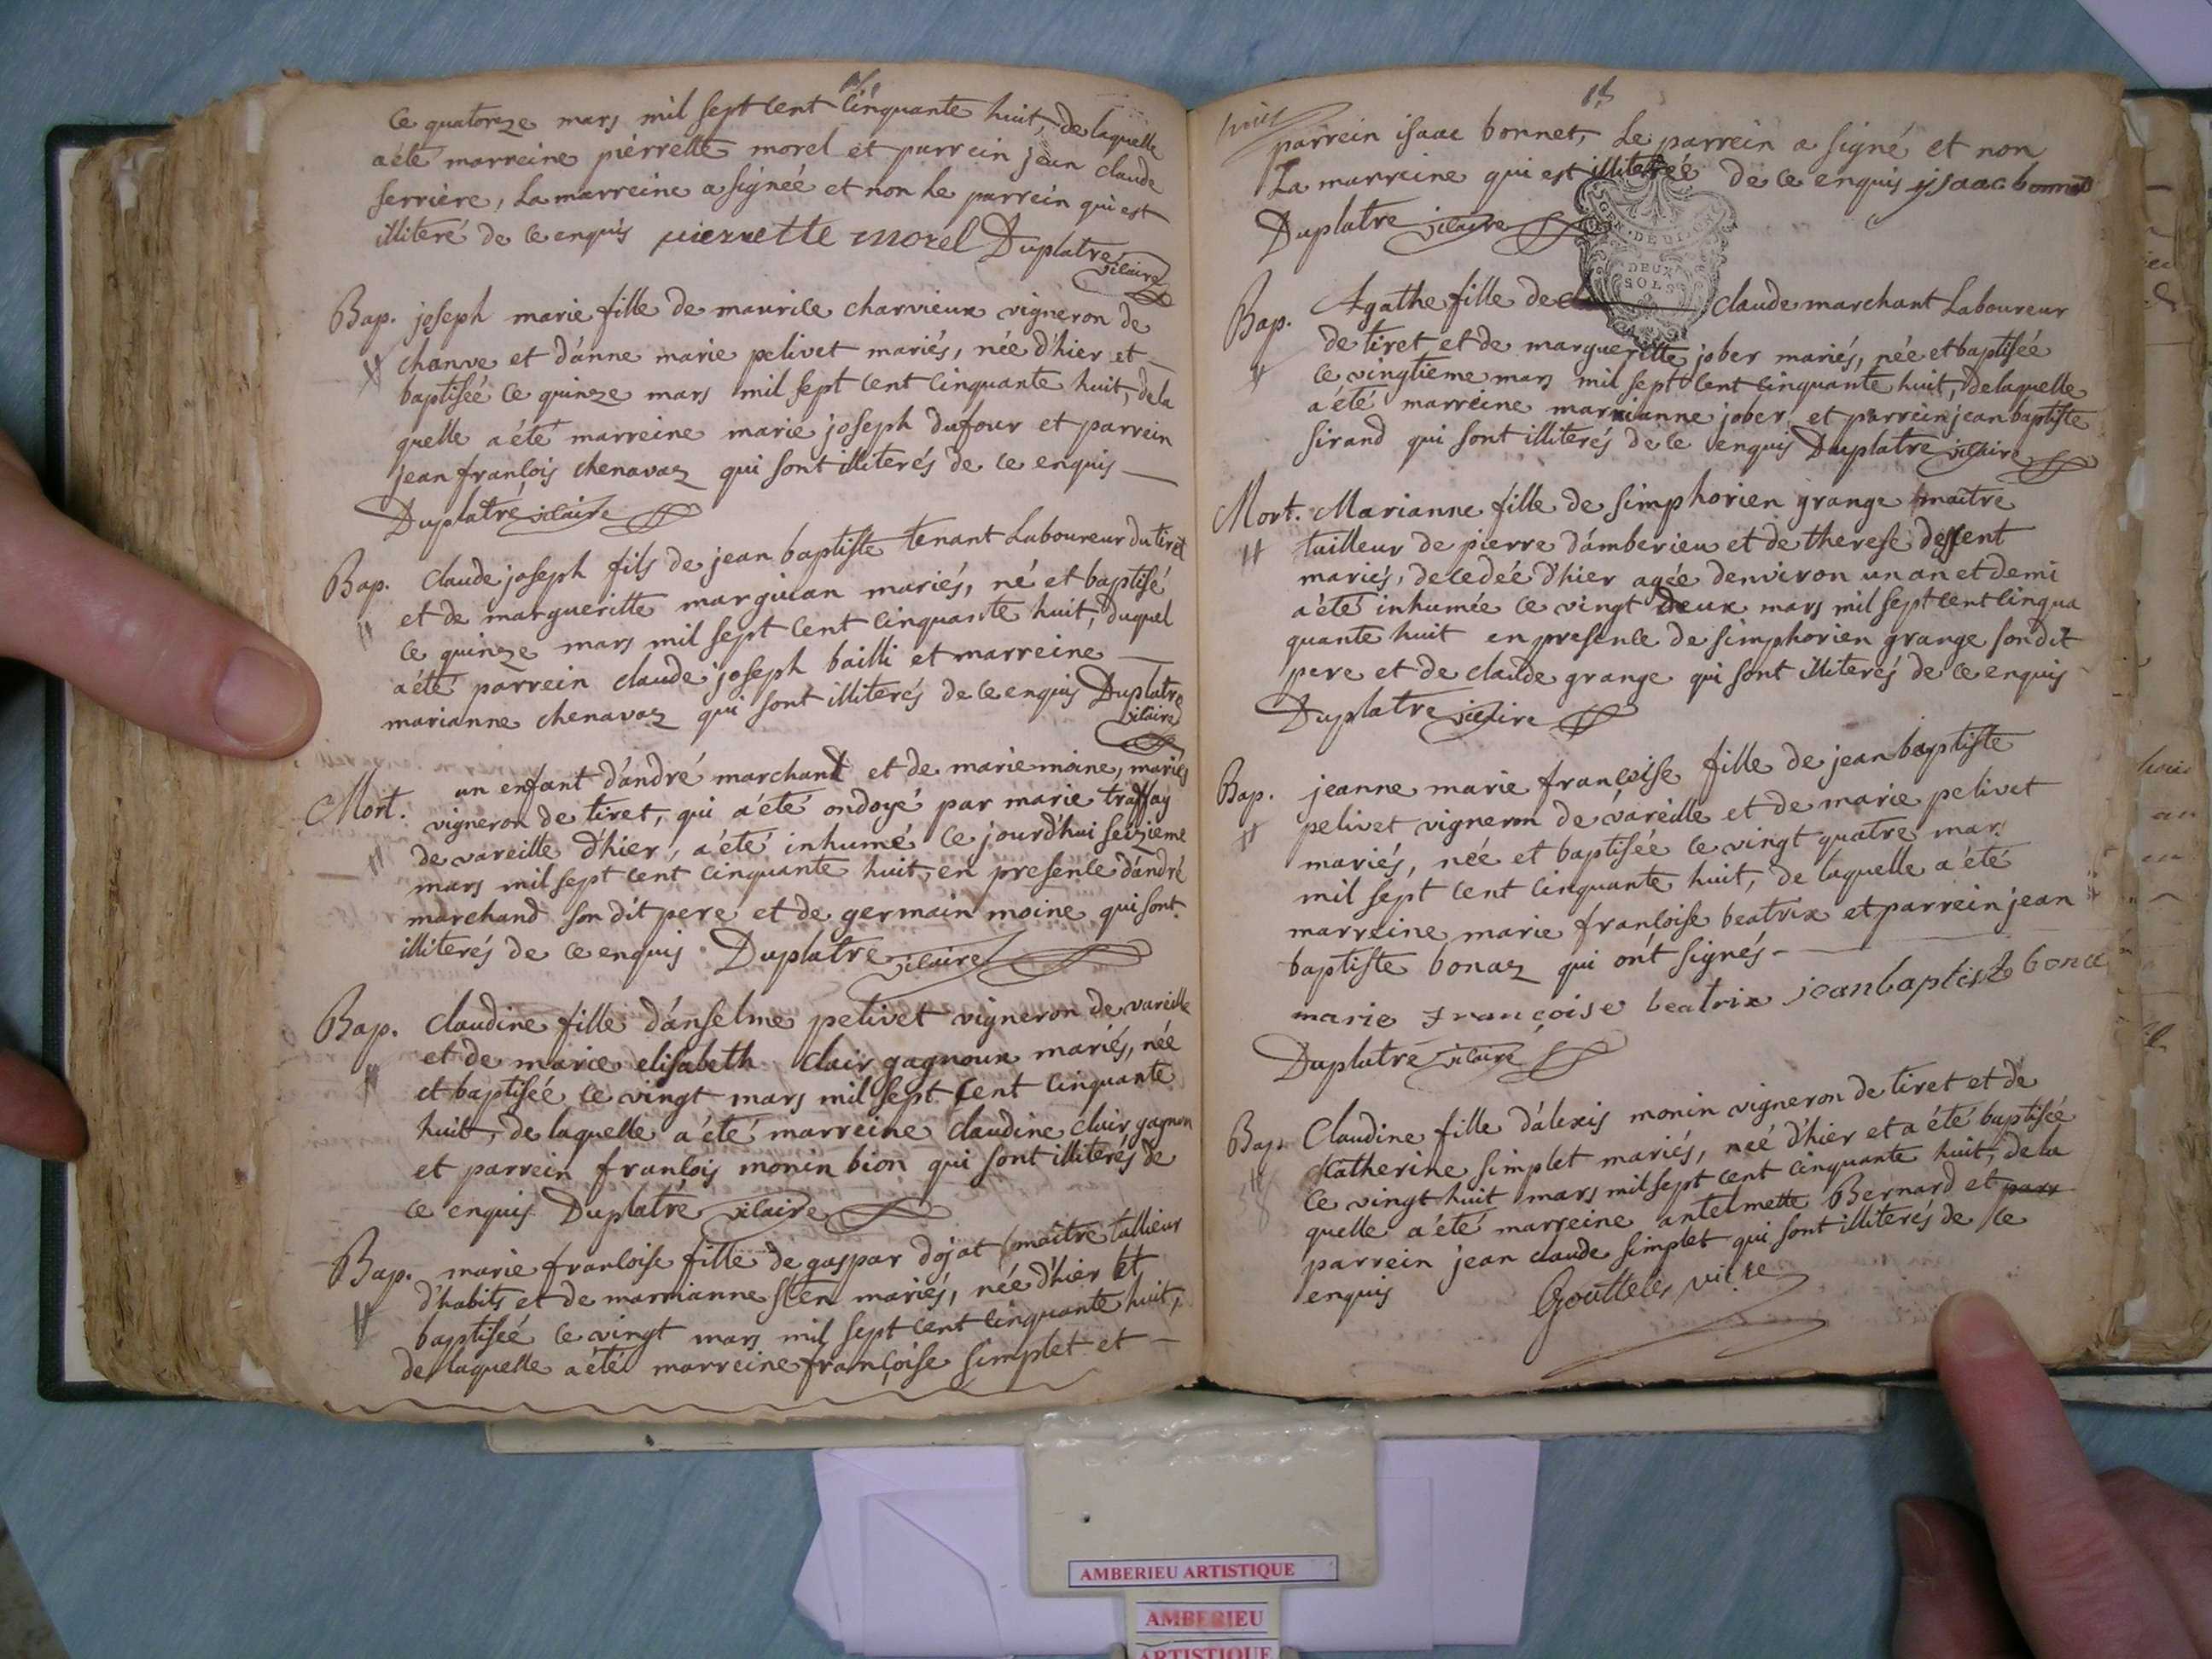 ce quatorze mars mil sept cent cinquante huit, de laquelle
a été marreine pierrette morel et parrein jean claude
ferriere, La marreine a signée et non Le parrein qui est
illiteré de ce enquis pierrette morel Duplatre
vicaire
Bap. joseph marie fille de maurice charvieux vigneron de
chanve et d'anne marie pelivet mariés, née d'hier et
baptisée ce quinze mars mil sept cent cinquante huit, de la
quelle a été marreine marie joseph dufour et parrein
jean françois chenavaz qui sont illiterés de ce enquis
Duplatre vicaire
Bap. Claude joseph fils de jean baptiste tenant Laboureur du tiret
et de margueritte marguian mariés, né et baptisé
ce quinze mars mil sept cent cinquante huit, duquel
a été parrein claude joseph bailli et marreine
marianne chenavaz qui sont illiterés de ce enquis Duplatre
vicaire
Mort. un enfant d'andré marchant et de marie moine, mariés
vigneron de tiret, qui a été ondoyé par marie traffay
de vareille d'hier, a été inhumé ce jourd'hui seizieme
mars mil sept cent cinquante huit, en presence d'andré
marchand son dit pere et de germain moine qui sont
illiterés de ce enquis Duplatre vicaire
Bap. Claudine fille d'anselme pelivet vigneron de vareille
et de marie elisabeth clair gagnoux mariés, née
et baptisée ce vingt mars mil sept cent cinquante
huit, de laquelle a été marreine claudine clair gagnon
et parrein françois monin bion qui sont illiterés de
ce enquis Duplatre vicaire
Bap. marie françoise fille de gaspar dojat maitre tallieur
d'habits et de marrianne sten mariés, née d'hier et
baptiseé ce vingt mars mil sept cent cinquante huit,
de laquelle a été marreine françoise simplet et
parrein isaac bonnet, Le parrein a signé et non
La marreine qui est illiterée de ce enquis ysaac bonnet
Duplatre vicaire
DEUX
SOLS
Bap. Agathe fille de claude marchant Laboureur
de tiret et de margueritte jober mariés, née et baptisée
ce vingtieme mars mil sept cent cinquante huit, de laquelle
a été marreine marrianne jober, et parrein jean baptiste
sirand qui sont illiterés de ce enquis Duplatre vicaire
Mort. Marianne fille de simphorien grange maitre
tailleur de pierre d'amberieu et de therese dessent
mariés, decedeé d'hier agée d'environ un an et demi
a été inhumée ce vingt deux mars mil sept cent cinqua
quante huit en presence de simphorien grange son dit
pere et de claude grange qui sont illiterés de ce enquis
Duplatre vicaire
Bap. jeanne marie françoise fille de jean baptiste
pelivet vigneron de vareille et de marie pelivet
mariés, née et baptisée ce vingt quatre mars
mil sept cent cinquante huit, de laquelle a été
marreine marie françoise beatrix et parrein jean
baptiste bonaz qui ont signés
marie Françoise beatrix jean baptiste bona
Duplatre vicaire
Bap. Claudine fille d'alexis monin vigneron de tiret et de
Katherine simplet mariés, neé d'hier et a été baptiseé
ce vingt huit mars mil sept cent cinquante huit, de la
quelle a été marreine antelmette Bernard et parr
parrein jean claude simplet qui sont illiterés de ce
enquis
AMBERIEU ARTISTIQUE
AMBERIEU
ARTISTIQUE